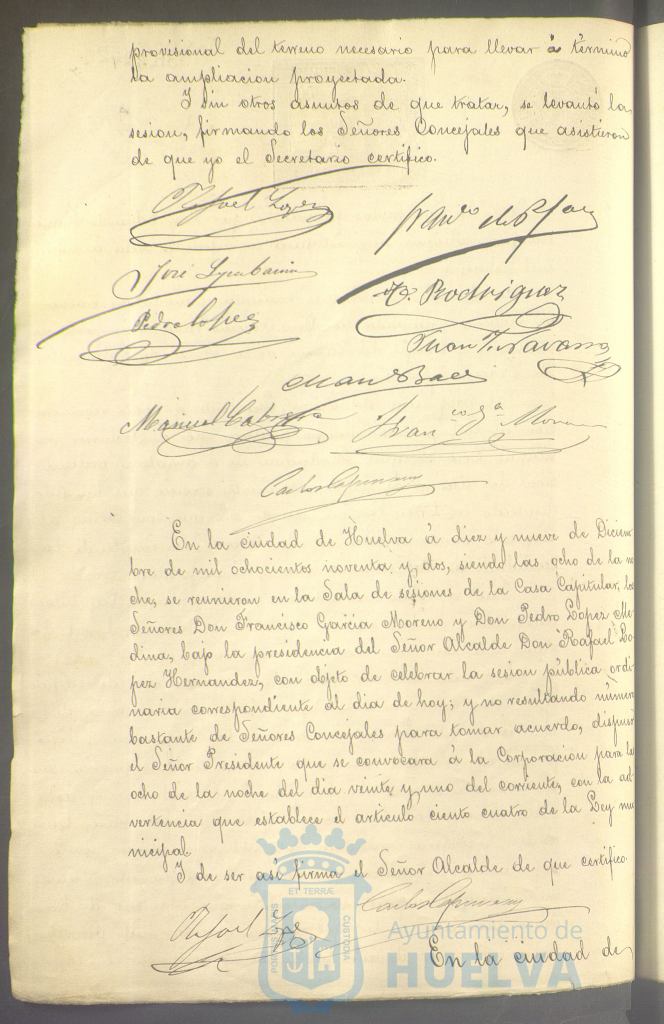 provisional del terreno necesario para llevar á término
la ampliacion proyectada.
Y sin otros asuntos de que tratar, se levantó la
sesion, firmando los Señores Concejales que asistieron
de que yo el Secretario certifico.
Rafael Lopez
José
Pedro Lopez
Rodriguez
Juan Navarro
Manuel Cabrera
Moreno
Carlos
En la ciudad de Huelva á diez y nueve de Diciem-
bre de mil ochocientos noventa y dos, siendo las ocho de la no
che, se reunieron en la Sala de sesiones de la Casa Capitular, los
Señores Don Francisco Garcia Moreno y Don Pedro Lopez Me
dina, bajo la presidencia del Señor Alcalde Don Rafael Lo
pez Hernandez, con objeto de celebrar la sesion pública ordi
naria correspondiente al dia de hoy; y no resultando número
bastante de Señores Concejales para tomar acuerdo, dispuso
el Señor Presidente que se convocara á la Corporacion para las
ocho de la noche del dia veinte y uno del corriente, con la ad
vertencia que establece el articulo ciento cuatro de la Ley mu
nicipal.
Y de ser asi firma el Señor Alcalde de que certifico.
Rafael Lopez
Carlos
En la ciudad de
ET TERRÆ
PORTUS MARIS
CUSTODIA
Ayuntamiento de
HUELVA